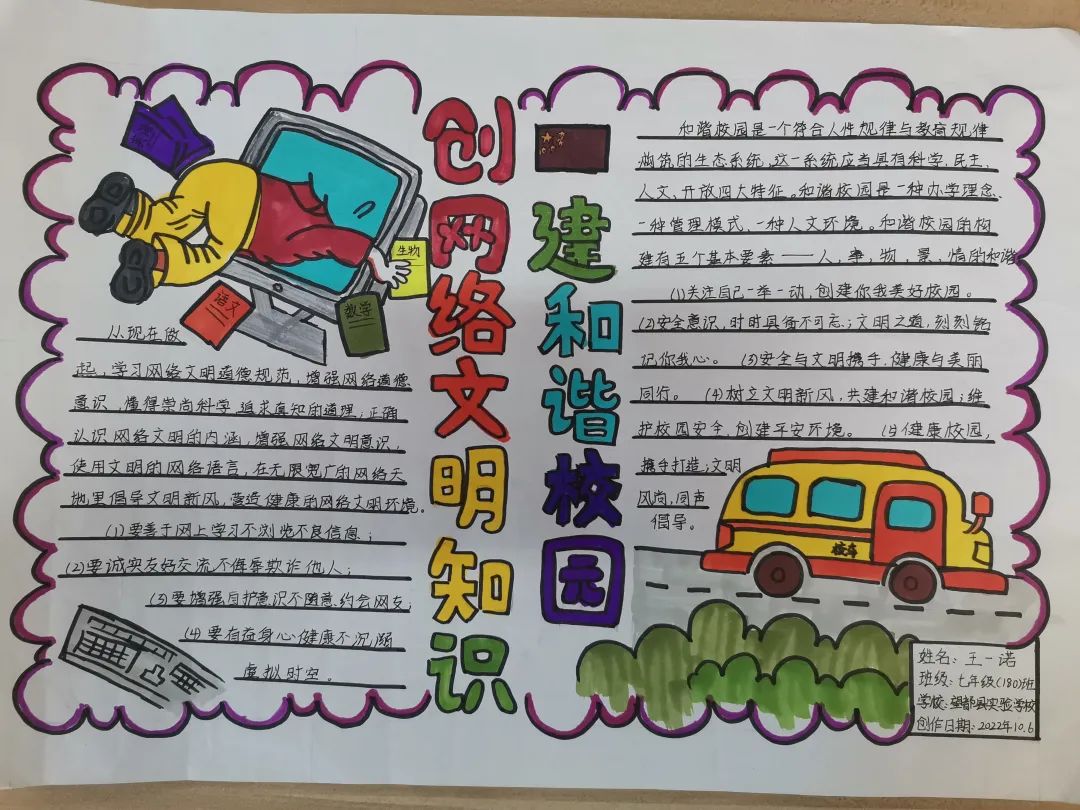 创网络文明知识
建和谐校园
生物
语文
数学
从现在做
起，学习网络文明道德规范，增强网络道德
意识，懂得崇尚科学，追求真知的道理；正确
认识网络文明的内涵，增强网络文明意识，
使用文明的网络语言，在无限宽广的网络天
地里倡导文明新风，营造健康的网络文明环境。
(1)要善于网上学习不浏览不良信息；
(2)要诚实友好交流不侮辱欺诈他人；
(3)要增强自护意识不随意约会网友；
(4)要有益身心健康不沉溺
虚拟时空。
和谐校园是一个符合人性规律与教育规律
构筑的生态系统，这一系统应当具有科学，民主，
人文、开放四大特征。和谐校园是一种办学理念，
一种管理模式、一种人文环境。和谐校园的构
建有五个基本要素——人，事，物，景，情的和谐
(1)关注自己一举一动，创建你我美好校园。
(2)安全意识，时时具备不可忘；文明之道，刻刻铭
记你我心。 (3)安全与文明携手，健康与美丽
同行。 (4)树立文明新风，共建和谐校园；维
护校园安全，创建平安环境。 (5)健康校园，
携手打造；文明
风尚，同声
倡导。
校车
姓名：王一诺
班级：七年级(180)班
学校：望都县实验学校
创作日期：2022年10.6